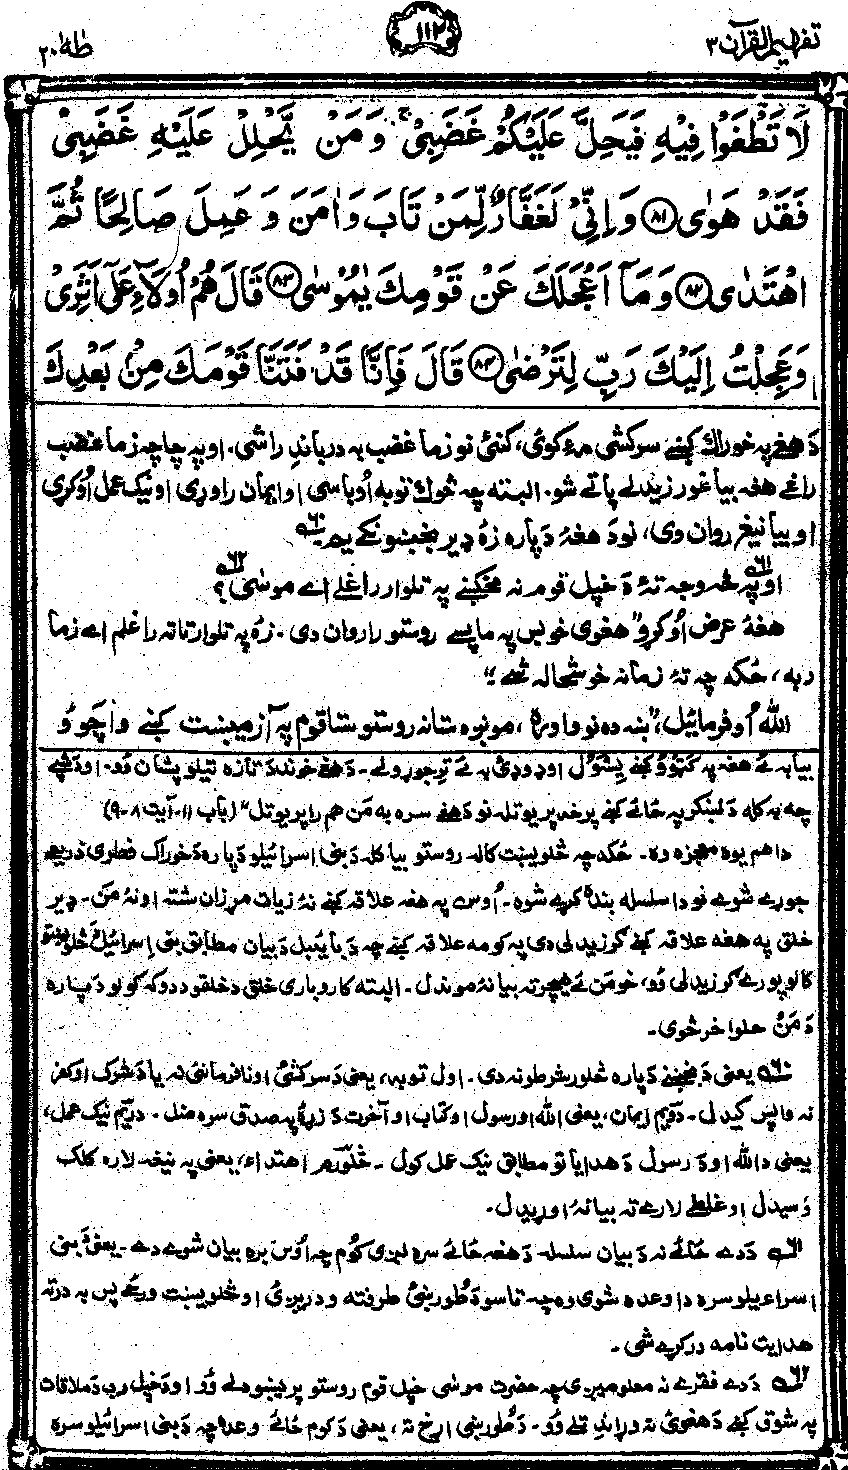 تفهیم القرآن ۳
۱۱۲
طٰهٰ ۲۰
لَا تَطْغَوْا فِيْهِ فَيَحِلَّ عَلَيْكُمْ غَضَبِيْ ۚ وَمَنْ يَّحْلِلْ عَلَيْهِ غَضَبِيْ
فَقَدْ هَوٰى ﴿۸۱﴾ وَاِنِّيْ لَغَفَّارٌ لِّمَنْ تَابَ وَاٰمَنَ وَعَمِلَ صَالِحًا ثُمَّ
اهْتَدٰى ﴿۸۲﴾ وَمَآ اَعْجَلَكَ عَنْ قَوْمِكَ يٰمُوْسٰى ﴿۸۳﴾ قَالَ هُمْ اُولَآءِ عَلٰٓى اَثَرِيْ
وَعَجِلْتُ اِلَيْكَ رَبِّ لِتَرْضٰى ﴿۸۴﴾ قَالَ فَاِنَّا قَدْ فَتَنَّا قَوْمَكَ مِنْ بَعْدِكَ
دَ هغے په خوراك كښے سركشى مهٔ كوئ، كنئ نو زما غضب به درباندِ راشى. او په چا چه زما غضب
راغے هغه بيا غورزيدلے پاتے شو. البته چه څوك توبه اُوباسى او ايمان راوړى او نيك عمل اُوكړى
او بيا نيغ روان وى، نو دَ هغهٔ دَ پاره زهٔ ډير بخښونكے يم ۔ ۶۰
۶۱ او په څه وجه تهٔ دَ خپل قوم نه مخكښے په تلوار راغلے اے موسٰى؟ ۶۲
هغهٔ عرض اُوكړو "هغوى خو بس په ما پسے روستو را روان دى. زهٔ په تلوار تا ته راغلم اے زما
ربه، ځكه چه تهٔ زما نه خوشحاله شے"
الله اُوفرمائيل، "ښه ده نو واوره، مونږه ستا نه روستو ستا قوم په آزميښت كښے واچوؤ
بيا به ئے هغه په كټوؤ كښے يشوٗل او ډوډئ به ئے تر جوړولے ـ دَ هغے خوند دَ تازه تيلو پشان وُو ـ او دَ شپے
چه به كله دَ لښكر په ځائے كښے پرخه پريوتله نو دَ هغے سره به مَن هم راپريوتل" (باب ۱۱ ـ آيت ۸ ـ ۹)
دا هم يوه معجزه وه ـ ځكه چه څلويښت كاله روستو بيا كله دَ بنى اسرائيلو دَ پاره دَ خوراك فطرى ذريعے
جوړے شوے نو دا سلسله بنده كړے شوه ـ اُوس په هغه علاقه كښے نهٔ زيات مرزان شته او نهٔ مَن ـ ډير
خلق په هغه علاقه كښے كرزيدلى دى په كومه علاقه كښے چه دَ بائيبل دَ بيان مطابق بنى اسرائيل څلويښتو
كالو پورے كرزيدلى وُو، خو مَن ئے هيچرته بيا نهٔ موندل ـ البته كاروبارى خلق دَ خلقو د دوكه كولو دَ پاره
دَ مَنْ حلوا خرڅوى ـ
۶۰ يعنى دَ بخښنے دَ پاره څلور شرطونه دى ـ اول توبه، يعنى دَ سركشئ او نافرمانئ نه يا دَ شرك او كفر
نه واپس كيدل ـ دوَيم ايمان، يعنى الله او رسول او كتاب او آخرت دَ زړهٔ په صدق سره منل ـ دريَم نيك عمل،
يعنى دَ الله او دَ رسول دَ هداياتو مطابق نيك عمل كول ـ څلورَم اهتداء، يعنى په نيغه لاره كلك
وَسيدل او غلطے لارے ته بيا نهٔ اوړيدل ـ
۶۱ دَ دے ځائے نه دَ بيان سلسله دَ هغه ځائے سره لږى كوم چه اُوس بره بيان شوے دے ـ يعنى دَ بنى
اسرائيلو سره دا وعده شوى وه چه تاسو دَ طور ښئ طرف ته ودريږئ او څلويښت ورځے پس به درته
هدايت نامه دركړے شى ـ
۶۲ دَ دے فقرے نه معلوميږى چه حضرت موسى خپل قوم روستو پريښودلے وُو او دَ خپل رب دَ ملاقات
په شوق كښے دَ هغوئ نه وړاندِ تلے وُو ـ دَ طور ښى اړخ ته، يعنى دَ كوم ځائے وعده چه دَ بنى اسرائيلو سره